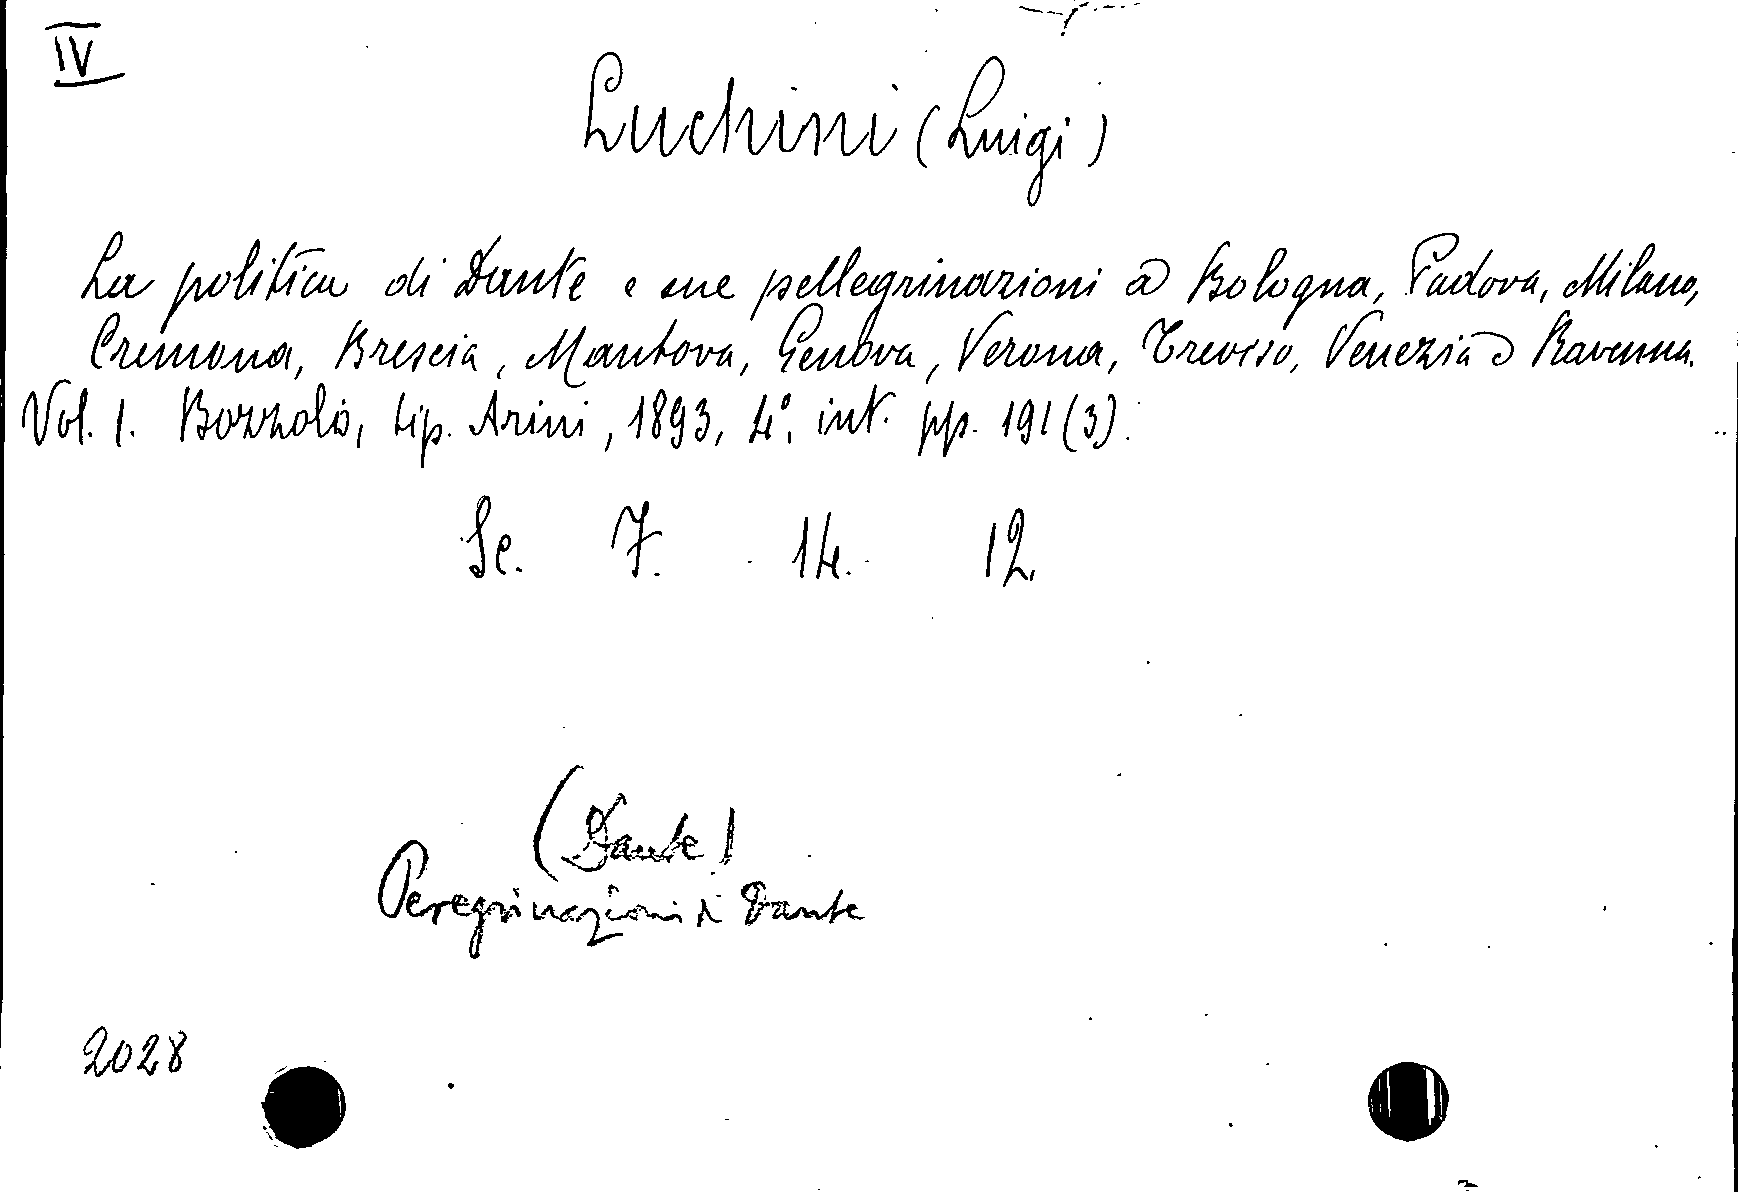 IV
Luchini (Luigi)
La politica di Dante e sue pellegrinazioni a Bologna, Padova, Milano,
Cremona, Brescia, Mantova, Genova, Verona, Treviso, Venezia e Ravenna.
Vol. I. Bozzolo, tip. Arini, 1893, 4°. int. pp. 191 (3).
Sc. 7. 14. 12.
(Dante)
Peregrinazioni di Dante
2028